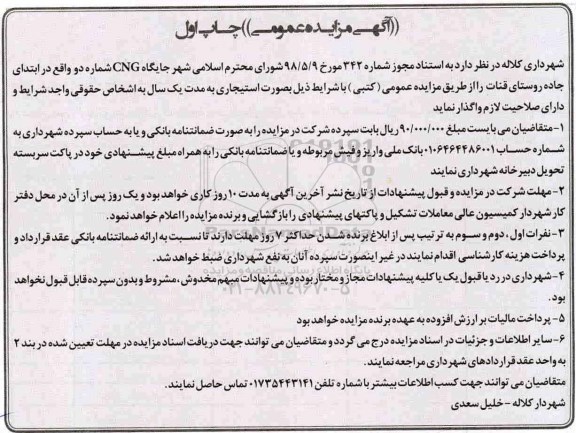 ((آگهی مزایده عمومی)) چاپ اول
شهرداری کلاله در نظر دارد به استناد مجوز شماره ۳۴۲ مورخ ۹۸/۵/۹ شورای محترم اسلامی شهر جایگاه CNG شماره دو واقع در ابتدای
جاده روستای قنات را از طریق مزایده عمومی (کتبی) با شرایط ذیل بصورت استیجاری به مدت یک سال به اشخاص حقوقی واجد شرایط و
دارای صلاحیت لازم واگذار نماید
۱- متقاضیان می بایست مبلغ ۹۰/۰۰۰/۰۰۰ ریال بابت سپرده شرکت در مزایده را به صورت ضمانتنامه بانکی و یا به حساب سپرده شهرداری به
شماره حساب ۰۱۰۶۴۶۴۴۸۶۰۰۱ بانک ملی واریز و فیش مربوطه و یا ضمانتنامه بانکی را به همراه مبلغ پیشنهادی خود در پاکت سربسته
تحویل دبیرخانه شهرداری نمایند
۲- مهلت شرکت در مزایده و قبول پیشنهادات از تاریخ نشر آخرین آگهی به مدت ۱۰ روز کاری خواهد بود و یک روز پس از آن در محل دفتر
کار شهردار کمیسیون عالی معاملات تشکیل و پاکتهای پیشنهادی را بازگشایی و برنده مزایده را اعلام خواهد نمود.
۳- نفرات اول، دوم و سوم به ترتیب پس از ابلاغ برنده شدن حداکثر ۷ روز مهلت دارند تا نسبت به ارائه ضمانتنامه بانکی عقد قرارداد و
پرداخت هزینه کارشناسی اقدام نمایند در غیر اینصورت سپرده آنان به نفع شهرداری ضبط خواهد شد.
۴- شهرداری در رد یا قبول یک یا کلیه پیشنهادات مجاز و مختار بوده و پیشنهادات مبهم مخدوش، مشروط و بدون سپرده قابل قبول نخواهد
بود.
۵- پرداخت مالیات بر ارزش افزوده به عهده برنده مزایده خواهد بود
۶- سایر اطلاعات و جزئیات در اسناد مزایده درج می گردد و متقاضیان می توانند جهت دریافت اسناد مزایده در مهلت تعیین شده در بند ۲
به واحد عقد قراردادهای شهرداری مراجعه نمایند.
متقاضیان می توانند جهت کسب اطلاعات بیشتر با شماره تلفن ۰۱۷۳۵۴۴۳۱۴۱ تماس حاصل نمایند.
شهردار کلاله - خلیل سعدی